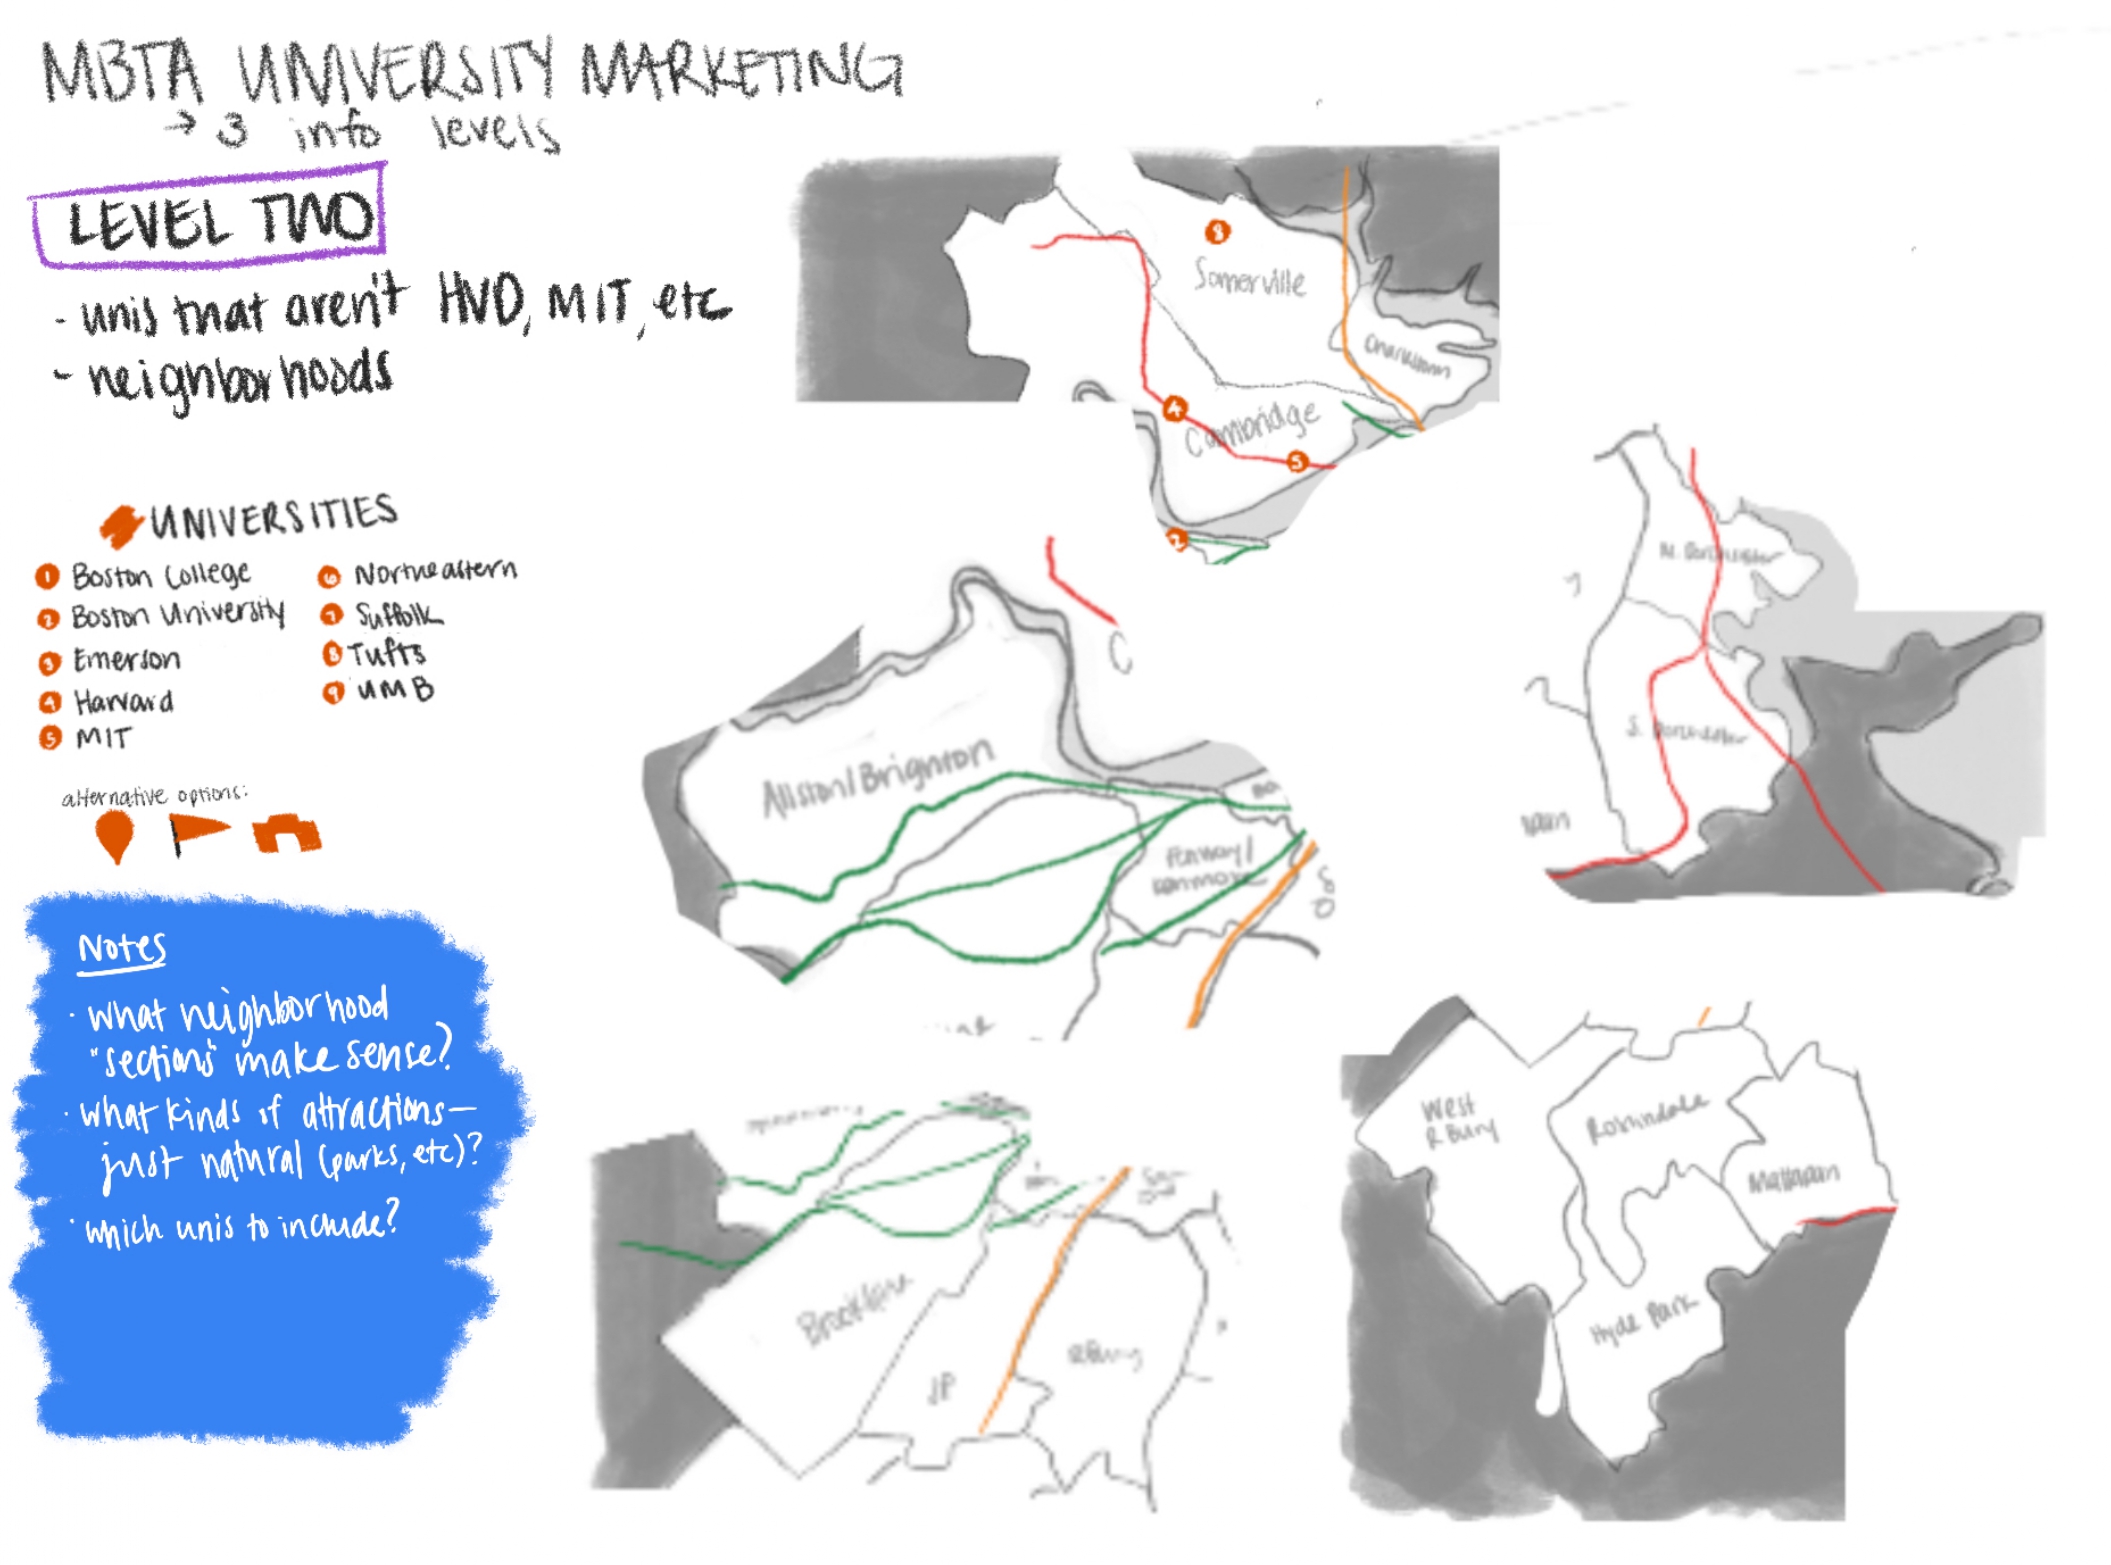 MBTA UNIVERSITY MARKETING
→ 3 info levels
LEVEL TWO
- unis that aren't HVD, MIT, etc
- neighborhoods
UNIVERSITIES
1 Boston College
2 Boston University
3 Emerson
4 Harvard
5 MIT
6 Northeastern
7 Suffolk
8 Tufts
9 UMB
alternative options:
Notes
· what neighborhood
"sections" make sense?
· what kinds of attractions—
just natural (parks, etc)?
· which unis to include?
8
Somerville
Charlestown
4
Cambridge
5
2
C
Allston/Brighton
Fenway/
Kenmore
N. Dorchester
S. Dorchester
Brookline
JP
RBury
West
RBury
Roslindale
Mattapan
Hyde Park